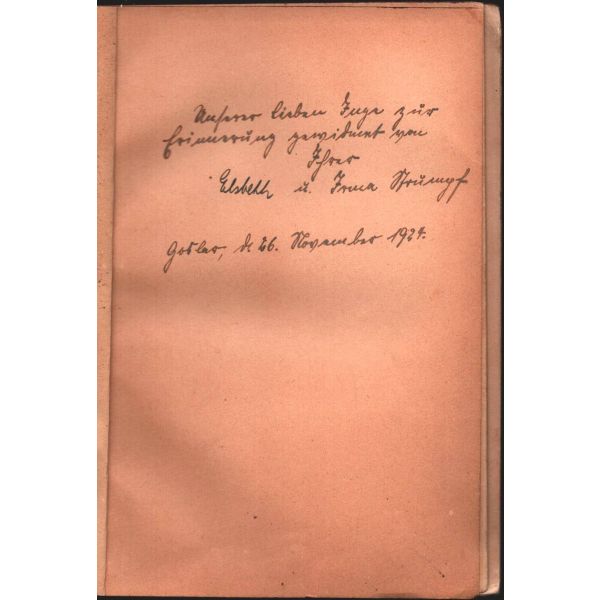 Unserer lieben Inge zur
Erinnerung gewidmet von
Ihrer
Elsbeth u. Irma Strumpf
Goslar, d. 26. November 1924.